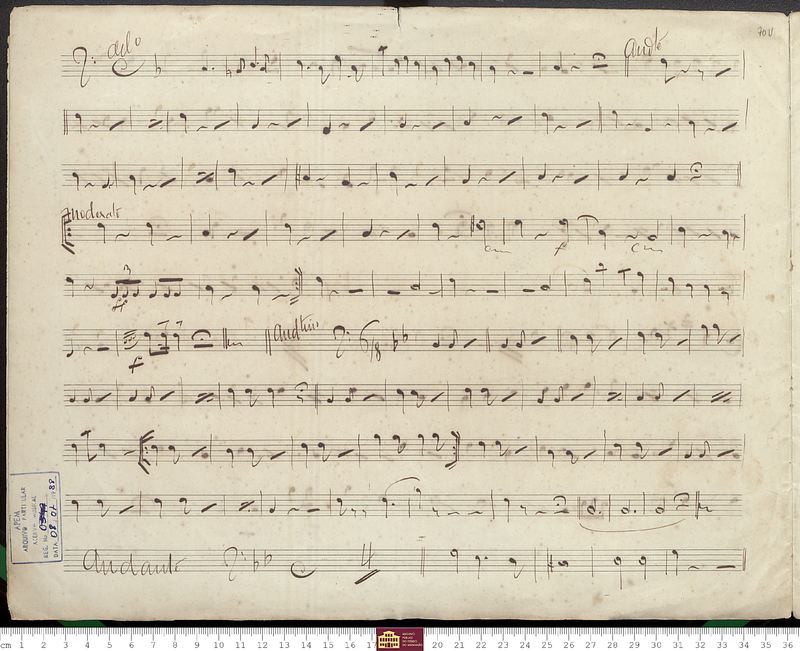 70v
And^te
Moderato
3
ff
f
And^tino
6/8
f
APEM
ARQUIVO PARTICULAR
ACERVO MUSICAL
REG. No
DATA 08.07.1988
Andante
cm 1 2 3 4 5 6 7 8 9 10 11 12 13 14 15 16 17 20 21 22 23 24 25 26 27 28 29 30 31 32 33 34 35 36